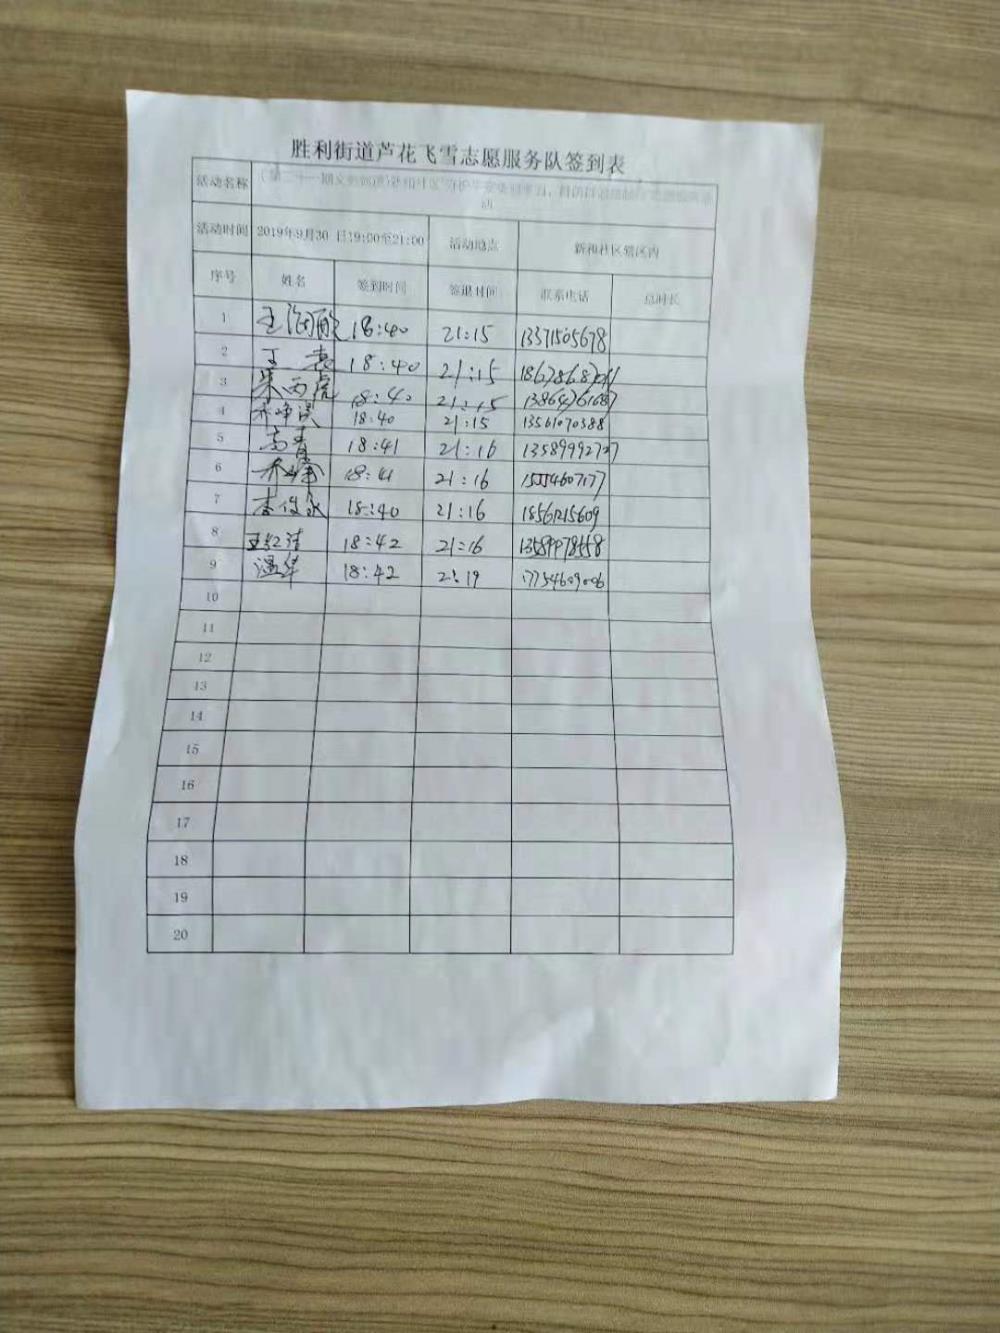 胜利街道芦花飞雪志愿服务队签到表
活动名称
动
活动时间 2019年9月30 日19:00至21:00 活动地点 新和社区辖区内
序号 姓名 签到时间 签退时间 联系电话 总时长
1 王 18:40 21:15 13371505678
2 丁 18:40 21:15
3 朱西虎 18:40 21:15
4 乔峰 18:40 21:15 13561070388
5 高青 18:41 21:16 13589992727
6 乔峰 18:41 21:16 15554607177
7 李俊永 18:40 21:16 18561215609
8 王红洁 18:42 21:16 13589978558
9 温华 18:42 21:19 17754609006
10
11
12
13
14
15
16
17
18
19
20